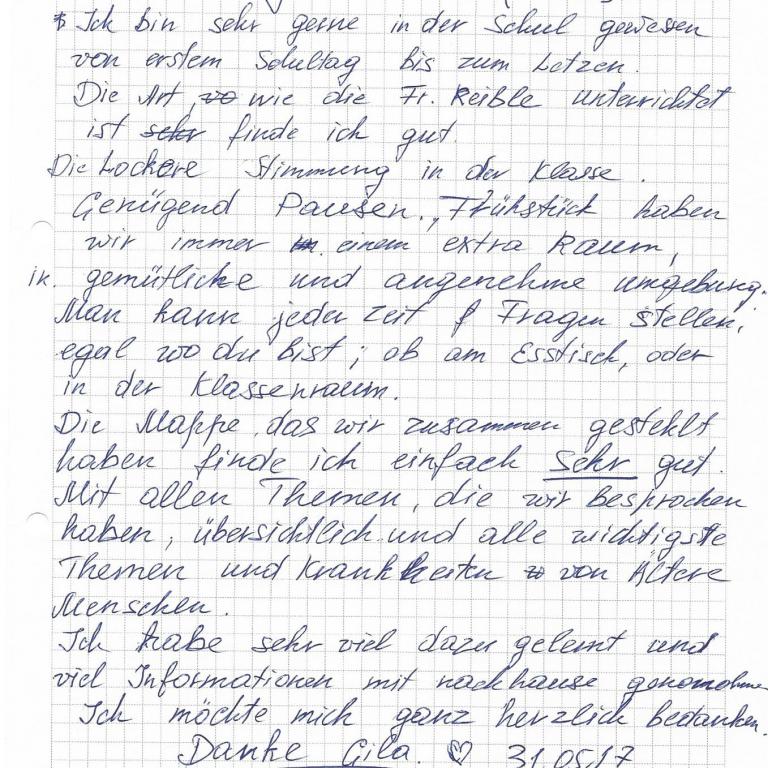 Ich bin sehr gerne in der Schul gewessen
von erstem Schultag bis zum Letzen.
Die Art, wie die Fr. Reible unterrichtet
ist sehr finde ich gut.
Die Lockere Stimmung in der Klasse.
Genügend Pausen., Frühstück haben
wir immer in einem extra Raum,
in. gemütliche und angenehme umgebung.
Man kann jeder Zeit Fragen stellen,
egal wo du bist; ob am Esstisch, oder
in der Klassenraum.
Die Mappe, das wir zusammen gestehlt
haben finde ich einfach sehr gut.
Mit allen Themen, die wir besprochen
haben, übersichtlich und alle wichtigste
Themen und Krankheiten von Ältere
Menschen.
Ich habe sehr viel dazu gelernt und
viel Informationen mit nachhause genomohme
Ich möchte mich ganz herzlich bedanken.
Danke Gila. ♡ 31.05.17